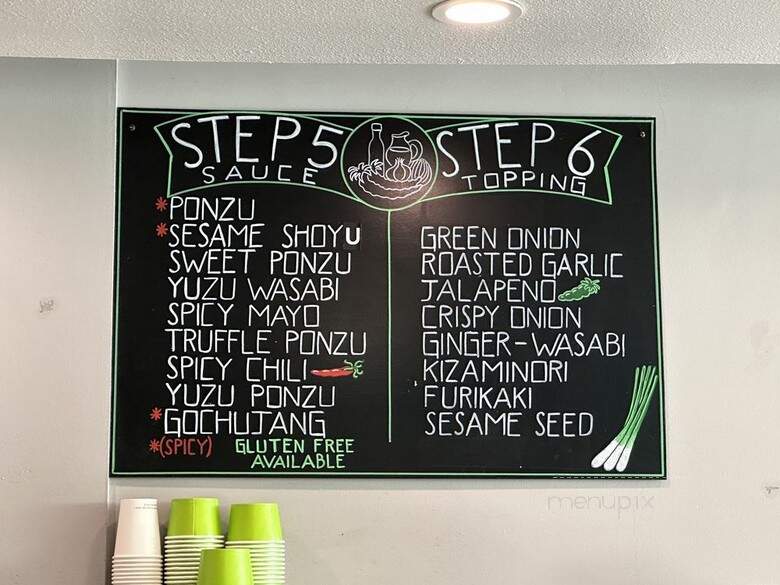 STEP 5
SAUCE
*PONZU
*SESAME SHOYU
SWEET PONZU
YUZU WASABI
SPICY MAYO
TRUFFLE PONZU
SPICY CHILI
YUZU PONZU
*GOCHUJANG
*(SPICY) GLUTEN FREE
AVAILABLE
STEP 6
TOPPING
GREEN ONION
ROASTED GARLIC
JALAPENO
CRISPY ONION
GINGER-WASABI
KIZAMINORI
FURIKAKI
SESAME SEED
menupix